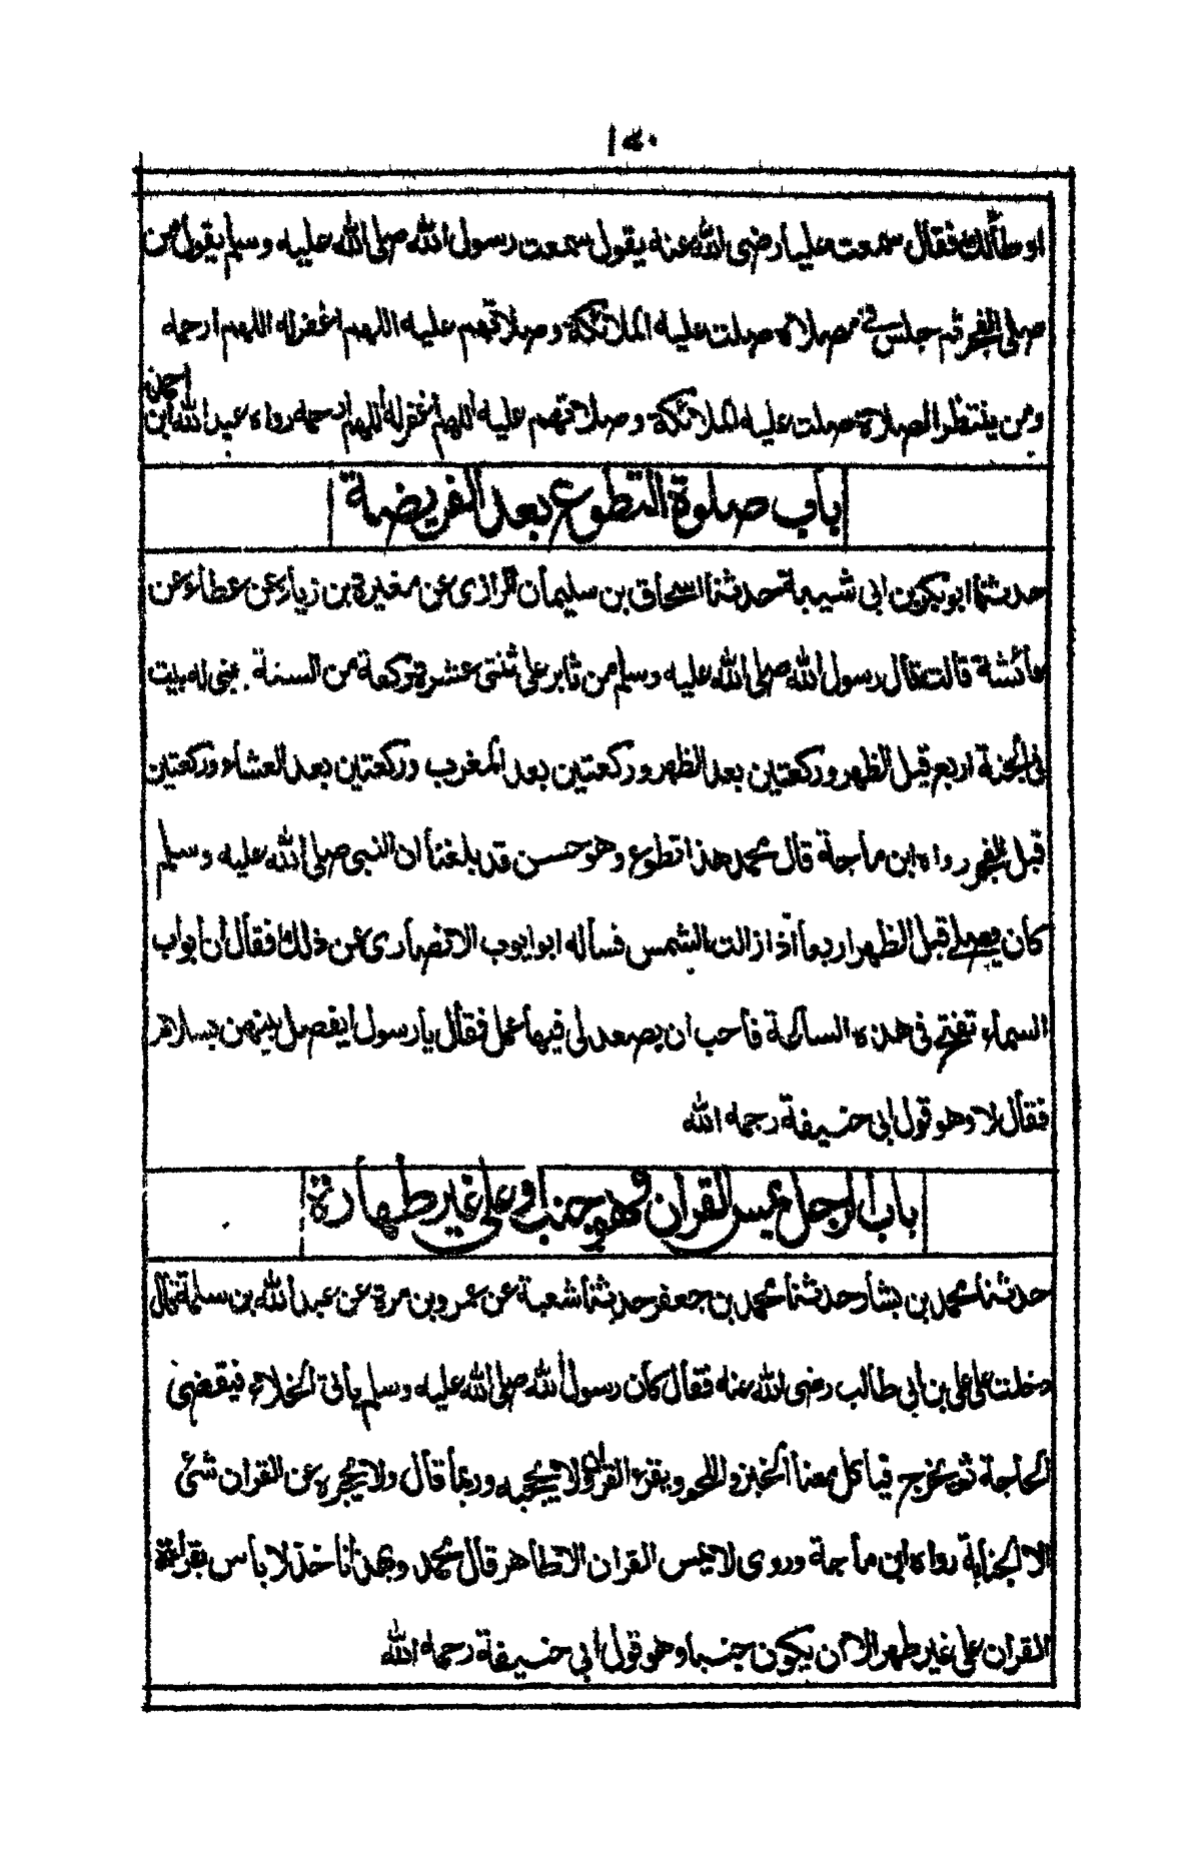 ١٤٠
او طالك فقال سمعت عليا رضى الله عنه يقول سمعت رسول الله صلى الله عليه وسلم يقول من
صلى الفجر ثم جلس فى مصلاه صلت عليه الملائكة وصلاتهم عليه اللهم اغفر له اللهم ارحمه
ومن ينتظر الصلاة صلت عليه الملائكة وصلاتهم عليه اللهم اغفر له اللهم ارحمه رواه عبد الله ابن احمد
باب صلوة التطوع بعد الفريضة
حدثنا ابو بكر بن ابى شيبة حدثنا اسحاق بن سليمان الرازى عن مغيرة بن زياد عن عطاء عن
عائشة قالت قال رسول الله صلى الله عليه وسلم من ثابر على ثنتى عشرة ركعة من السنة بنى له بيت
فى الجنة اربع قبل الظهر وركعتين بعد الظهر وركعتين بعد المغرب وركعتين بعد العشاء وركعتين
قبل الفجر رواه ابن ماجة قال محمد هذا تطوع وهو حسن قد بلغنا ان النبى صلى الله عليه وسلم
كان يصلى قبل الظهر اربعا اذا زالت الشمس فسأله ابو ايوب الانصارى عن ذلك فقال ان ابواب
السماء تفتح فى هذه الساعة فاحب ان يصعد لى فيها عمل فقال يا رسول ايفصل بينهن بسلام
فقال لا وهو قول ابى حنيفة رحمه الله
باب الرجل يمس القران وهو جنب او على غير طهارة
حدثنا محمد بن بشار حدثنا محمد بن جعفر حدثنا شعبة عن عمرو بن مرة عن عبد الله بن سلمة قال
دخلت على على بن ابى طالب رضى الله عنه فقال كان رسول الله صلى الله عليه وسلم يأتى الخلاء فيقضى
الحاجة ثم يخرج فيأكل معنا الخبز واللحم ويقرء القران ولا يحجبه وربما قال ولا يحجزه عن القران شئ
الا الجنابة رواه ابن ماجة وروى لا يمس القران الا طاهر قال محمد وبهذا ناخذ لا بأس بقراءة
القران على غير طهر الا ان يكون جنبا وهو قول ابى حنيفة رحمه الله